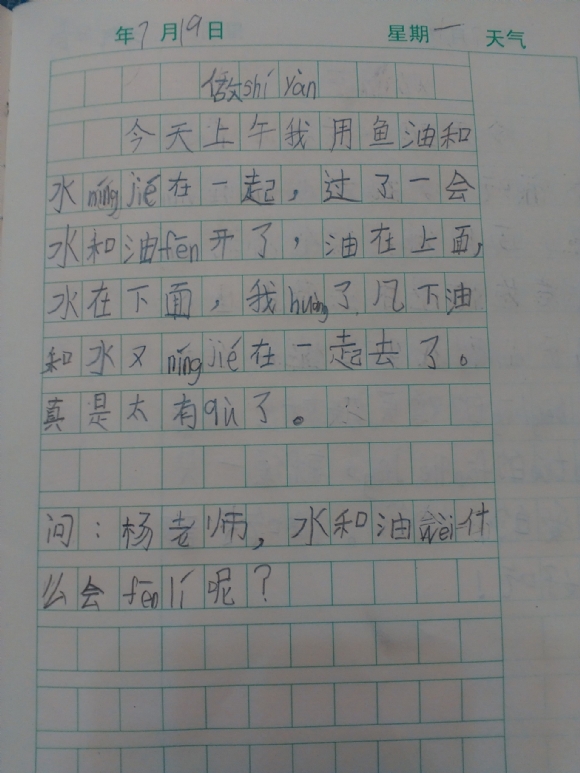 年7月19日 星期一 天气
做shí yàn
今天上午我用鱼油和
水níng jié在一起，过了一会
水和油fēn开了，油在上面，
水在下面，我huàng了几下油
和水又níng jié在一起去了。
真是太有qù了。
问：杨老师，水和油wèi什
么会fēn lí呢？